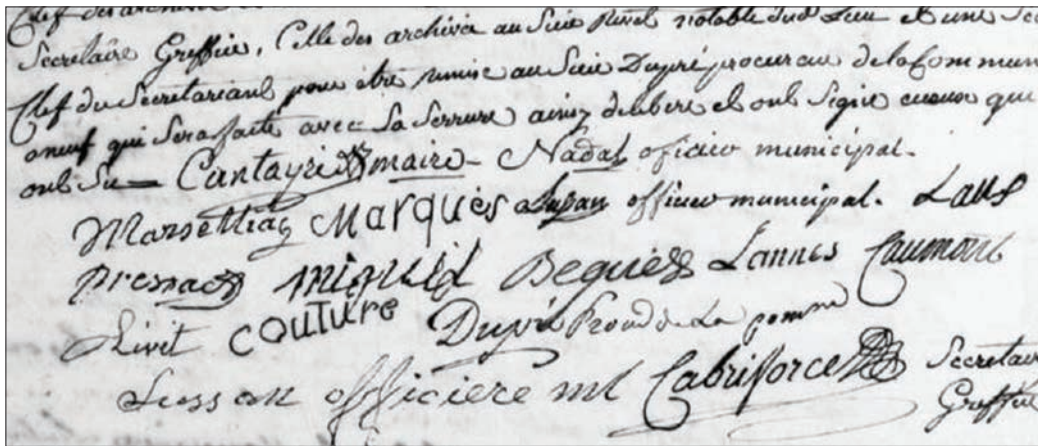 Clef des archives
Secretaire Greffier, Celle des archives au Sieur Rivet notable dud. Lieu et une Sec
Clef du Secretariant pour être remise au Sieur Dupré procureur de la Commun
oneuf qui Sera faite avec Sa Serrure ainsy deliberé et ont Signé ceux que
ont Su Cantayre maire - Nadal officier municipal.
Marselliac Marques Lupan officier municipal. Laus
Dresnac miquel Beques Lannes Caumont
Livet couture Dupré Procur de La comme
Susson officiere ml Cabriforce Secretair
Greffier